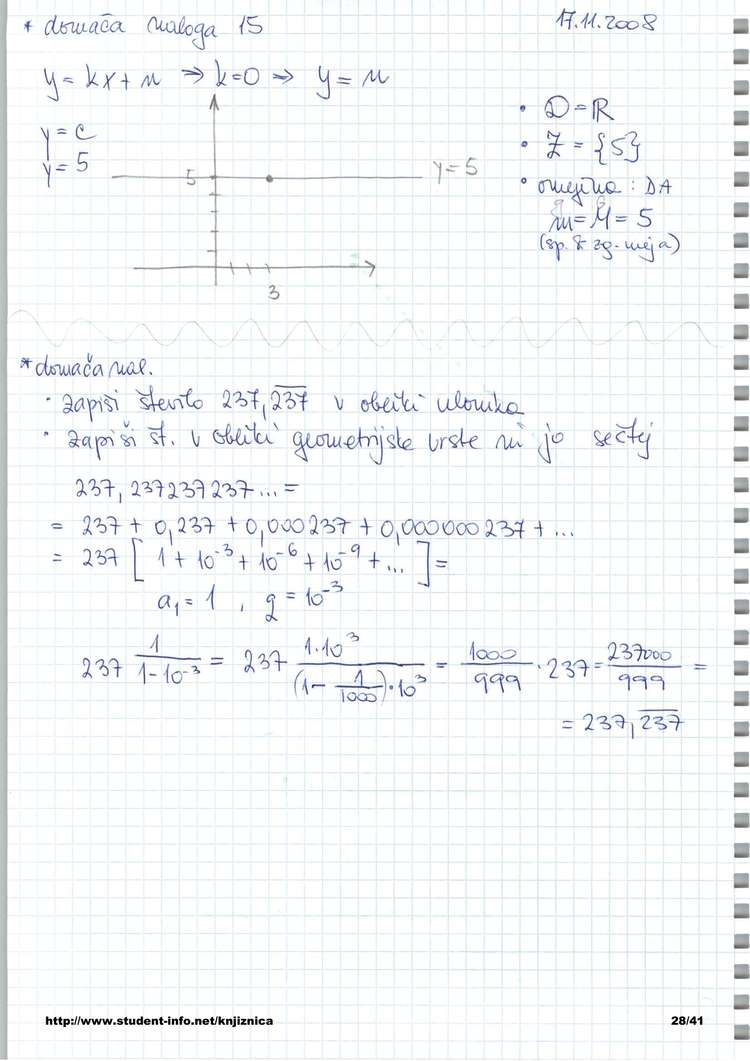 * domača naloga 15 17.11.2008
y = kx + n ⇒ k = 0 ⇒ y = n
y = c
y = 5
5
y = 5
3
• D = ℝ
• Z = {5}
• omejitva : DA
m = M = 5
(sp. & zg. meja)
* domača nal.
• zapiši število 237,\overline{237} v obliki ulomka
• zapiši št. v obliki geometrijske vrste in jo seštej
237,237237237... =
= 237 + 0,237 + 0,000237 + 0,000000237 + ...
= 237 [ 1 + 10^{-3} + 10^{-6} + 10^{-9} + ... ] =
a_1 = 1 , q = 10^{-3}
237 \frac{1}{1-10^{-3}} = 237 \frac{1·10^3}{(1-\frac{1}{1000})·10^3} = \frac{1000}{999} · 237 = \frac{237000}{999} =
= 237,\overline{237}
http://www.student-info.net/knjiznica 28/41